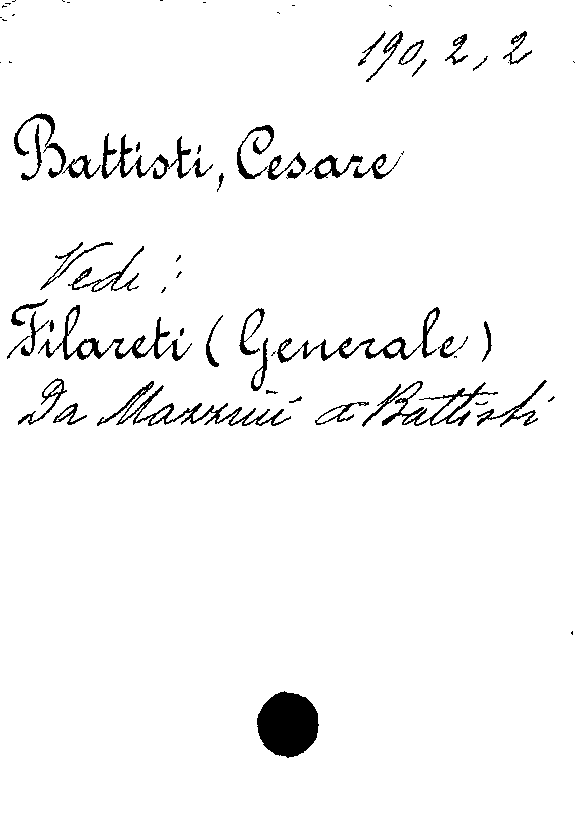 190, 2, 2
Battisti, Cesare
Vedi :
Filareti ( Generale )
Da Mazzini a Battisti